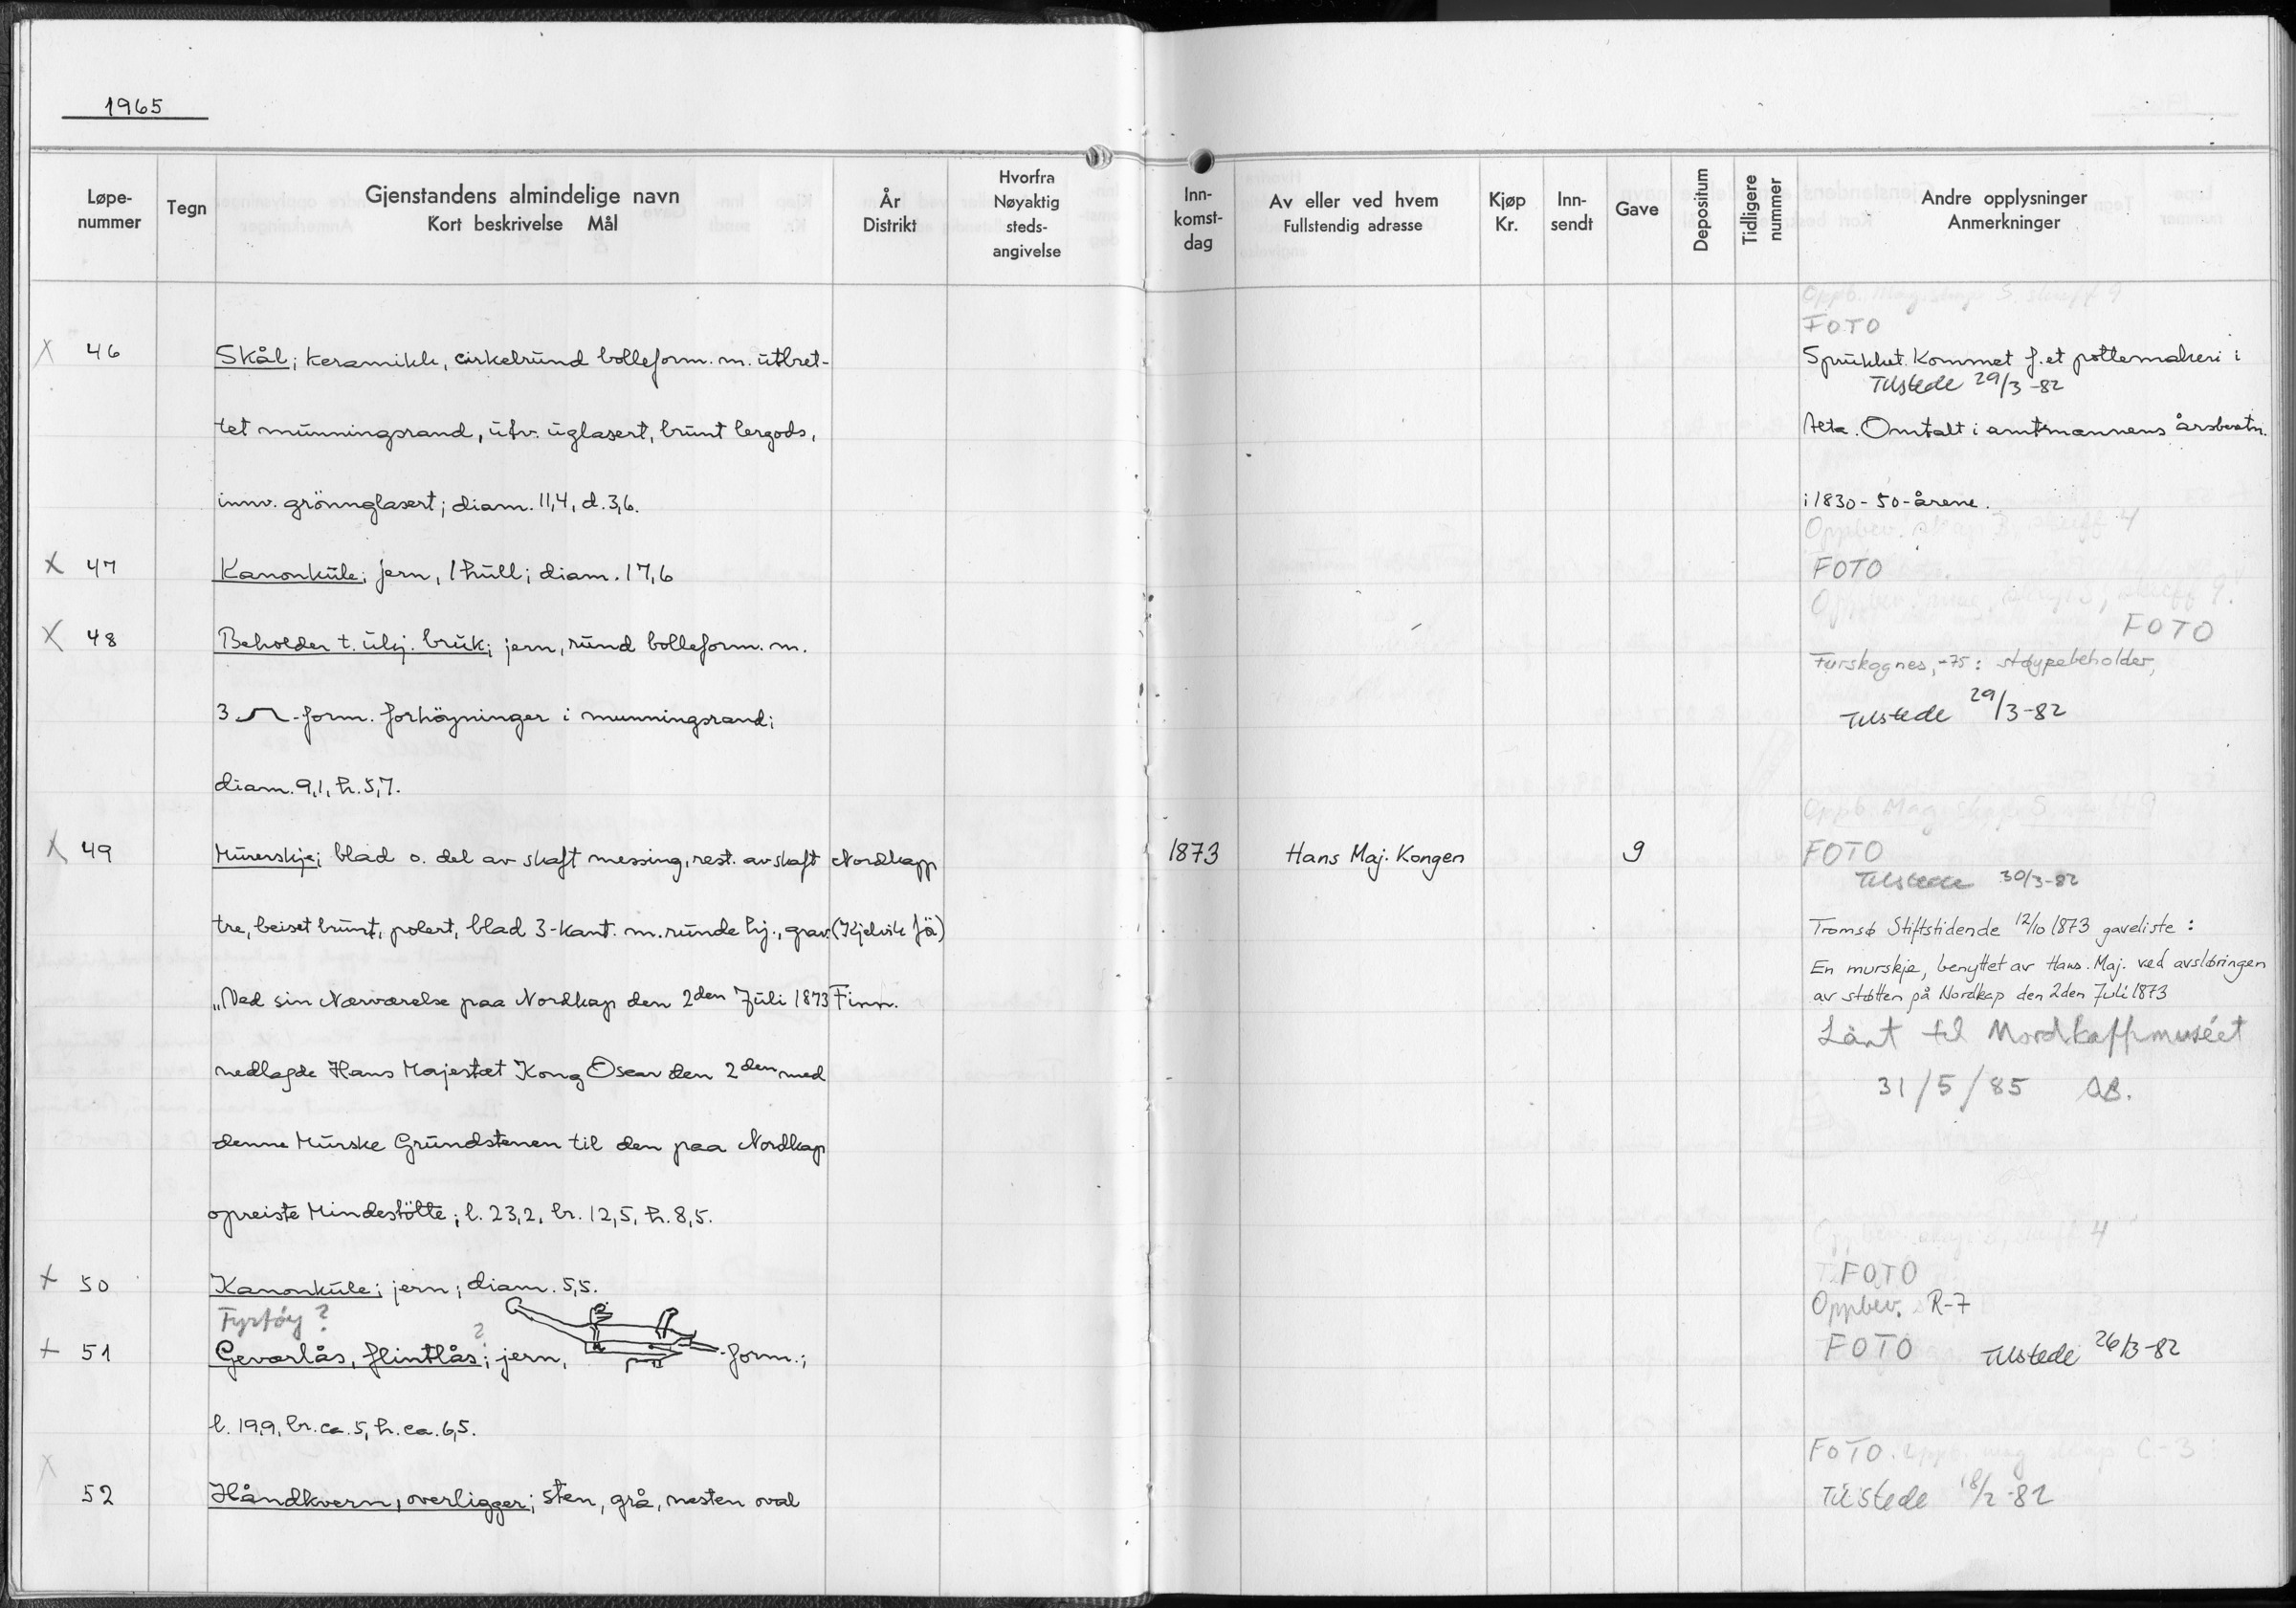 1965
Løpe-
nummer
Tegn
Gjenstandens almindelige navn
Kort beskrivelse Mål
År
Distrikt
Hvorfra
Nøyaktig
steds-
angivelse
Inn-
komst-
dag
Av eller ved hvem
Fullstendig adresse
Kjøp
Kr.
Inn-
sendt
Gave
Depositum
Tidligere
nummer
Andre opplysninger
Anmerkninger
FOTO
X 46 Skål; keramikk, cirkelrund bolleform. m. utbret- Sprukket. Kommet f. et pottemakeri i
Tilstede 29/3-82
tet munningsrand, utv. uglasert, brunt lergods, Alta. Omtalt i amtmannens årsberetn.
innv. grönnglasert; diam. 11,4, d. 3,6. i 1830-50-årene.
Oppbev. skap B, skuff 4
X 47 Kanonkule; jern, 1 hull; diam. 17,6 FOTO
FOTO
X 48 Beholder t. ukj. bruk; jern, rund bolleform. m.
Furskognes, -75: støypebeholder,
3 -form. forhöyninger i munningsrand; Tilstede 29/3-82
diam. 9,1, h. 5,7.
Oppb. Mag. skap 5 skuff 9
X 49 Murerskje; blad o. del av skaft messing, rest. av skaft Nordkapp 1873 Hans Maj. Kongen 9 FOTO
Tilstede 30/3-82
tre, beiset brunt, polert, blad 3-kant. m. runde hj., grav. (Kjelvik fä) Tromsø Stiftstidende 12/10 1873 gaveliste:
En murskje, benyttet av Hans. Maj. ved avsløringen
„Ved sin Nærværelse paa Nordkap den 2den Juli 1873 Finn. av støtten på Nordkap den 2den Juli 1873
Lånt til Nordkappmuséet
nedlagde Hans Majestæt Kong Oscar den 2den med 31/5/85 AB.
denne Murske Grundstenen til den paa Nordkap
opreiste Mindestötte; l. 23,2, br. 12,5, h. 8,5.
X 50 Kanonkule; jern; diam. 5,5. FOTO
Fyrtöy? Oppbev. R-7
X 51 Geværlås, flintlås?; jern, -form.; FOTO Tilstede 26/3-82
l. 19,9, br. ca. 5, h. ca. 6,5.
FOTO. Oppb. mag skap C-3
X 52 Håndkvern, overligger; sten, grå, nesten oval Tilstede 18/2-82